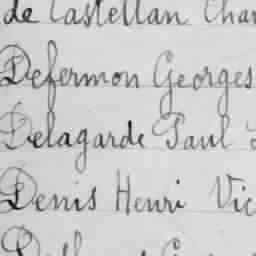 de Castellan Char
Defermon Georges
Delagarde Paul
Denis Henri Vic